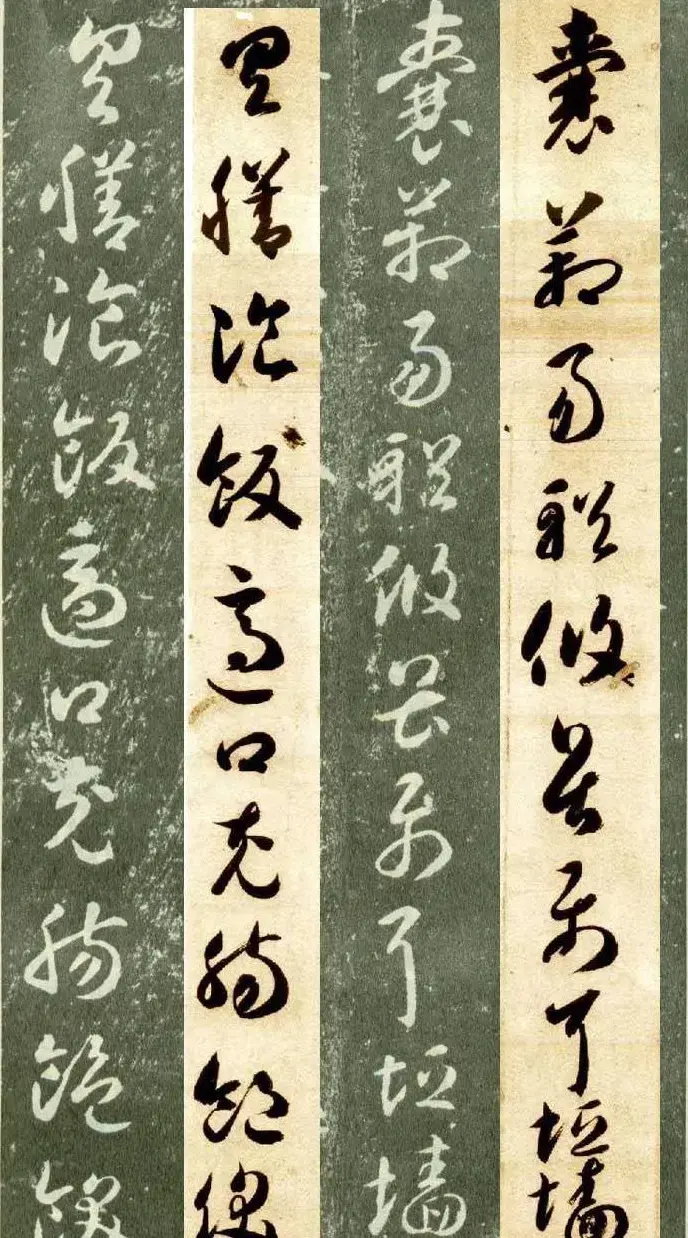 囊箱易輶攸畏屬耳垣墻
囊箱易輶攸畏屬耳垣墻
具膳飡飯適口充腸飽飫
具膳飡飯適口充腸飽飫